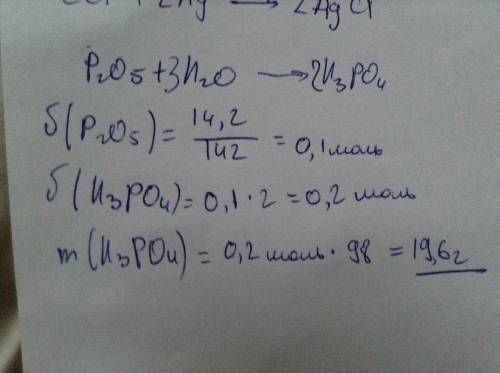 2Ag → 2AgCl
P₂O₅ + 3H₂O → 2H₃PO₄
δ(P₂O₅) = 14,2/142 = 0,1 моль
δ(H₃PO₄) = 0,1 · 2 = 0,2 моль
m(H₃PO₄) = 0,2 моль · 98 = 19,6 г